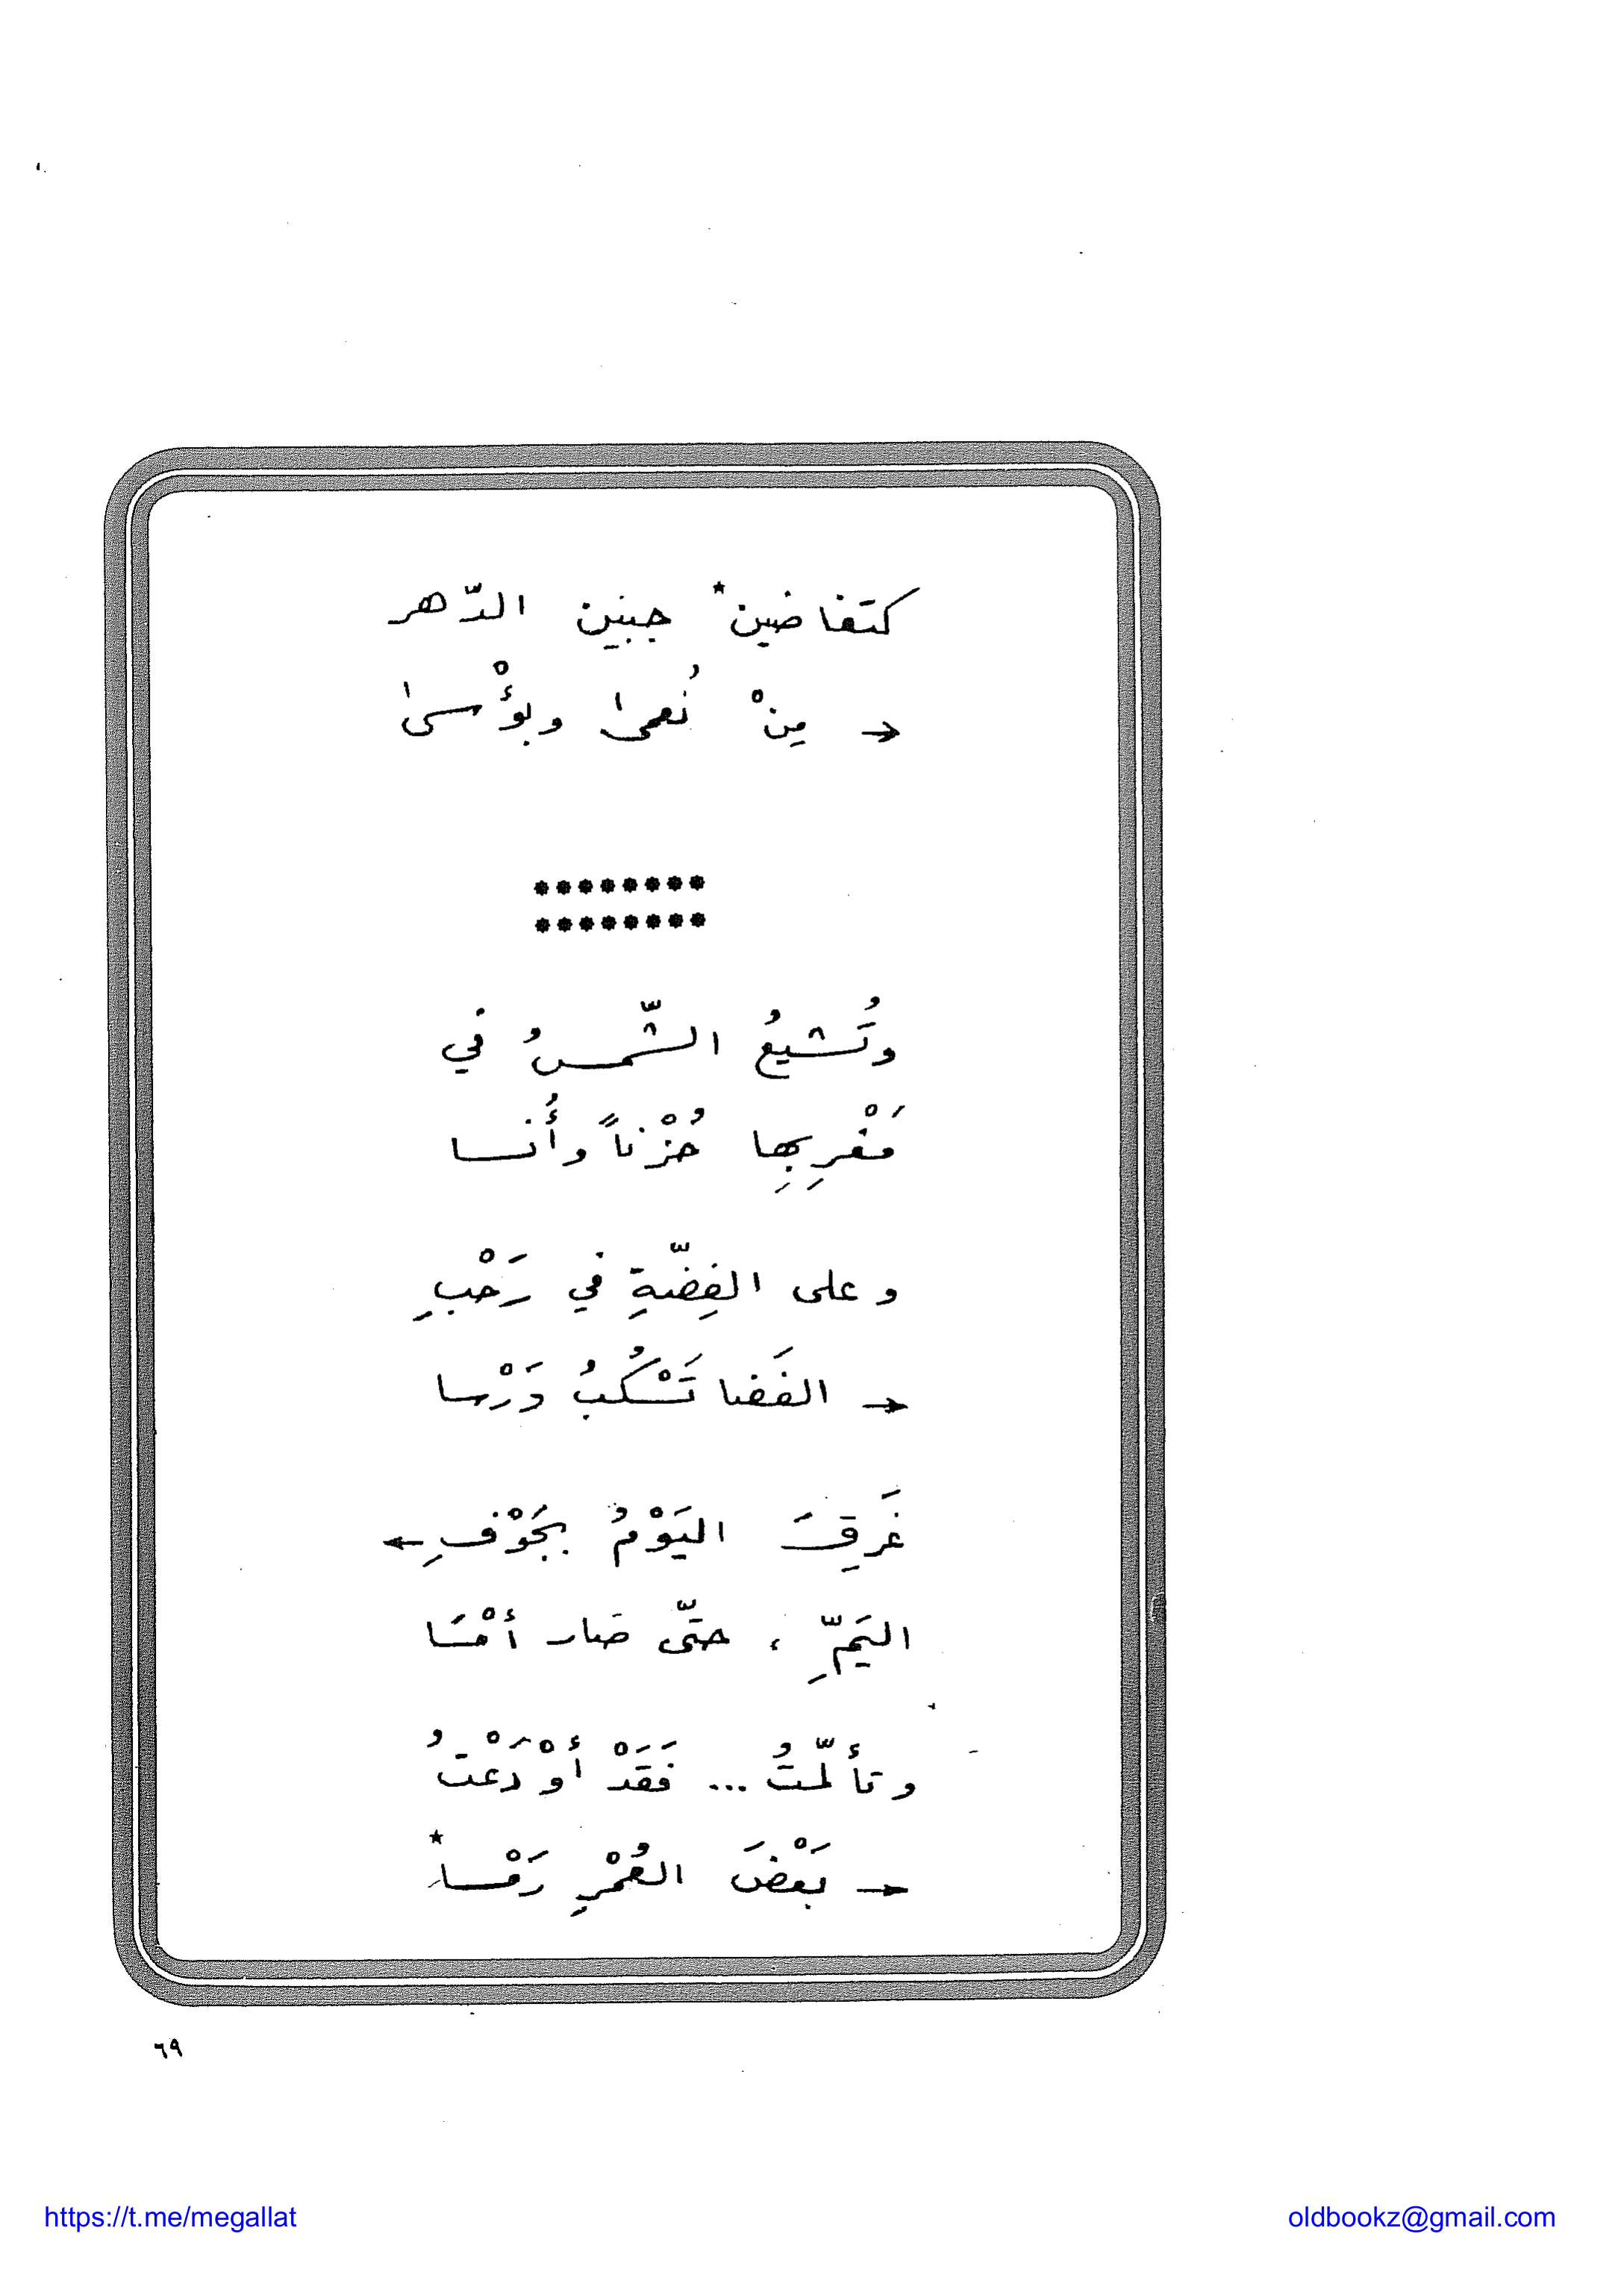 كتغاضين* جبين الدّهر
← مِنْ نُعمىٰ وبؤْسىٰ
********
********
وتُشيعُ الشّمسُ في
مَغْرِبِها حُزْناً وأُنسا
وعلى الفِضّةِ في رَحْبِ
← الفَضا تَسْكُبُ وَرْسا
غَرِقَ اليَوْمُ بجَوْفِ ←
اليَمِّ ، حتّى صَار أمْسَا
وتألّمتُ ... فَقَدْ أوْدَعْتُ
← بَعْضَ العُمْرِ رَمْسا*
٦٩
https://t.me/megallat
oldbookz@gmail.com